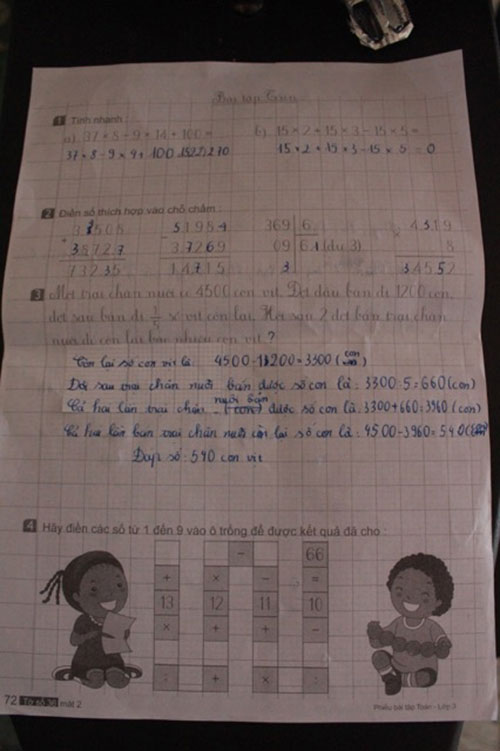 Bài tập Toán
1 Tính nhanh :
a) 37 × 8 - 9 × 14 + 100 =
b) 15 × 2 + 15 × 3 - 15 × 5 =
15 × 2 + 15 × 3 - 15 × 5 = 0
2 Điền số thích hợp vào chỗ chấm :
51984
369 6
4319
38727
37269
09 61 (dư 3)
8
73235
14715
3
34552
3 Một trại chăn nuôi có 4500 con vịt. Đợt đầu bán đi 1200 con,
đợt sau bán đi 1/5 số vịt còn lại. Hỏi sau 2 đợt bán trại chăn
nuôi đó còn lại bao nhiêu con vịt ?
Còn lại số con vịt là 4500 - 1200 = 3300 (con
Đợt sau trại chăn nuôi bán được số con là : 3300 : 5 = 660 (con)
nuôi bán
Cả hai lần trại chăn (con) được số con là : 3300 + 660 = 3960 (con)
Cả hai lần bán trại chăn nuôi còn lại số con là : 4500 - 3960 = 540
Đáp số : 540 con vịt
4 Hãy điền các số từ 1 đến 9 vào ô trống để được kết quả đã cho :
- 66
+ × - =
13 12 11 10
× + + -
: + × :
72 Tờ số 36 mặt 2
Phiếu bài tập Toán - Lớp 3